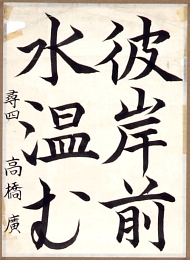 彼岸前
水温む
尋四 高橋廣